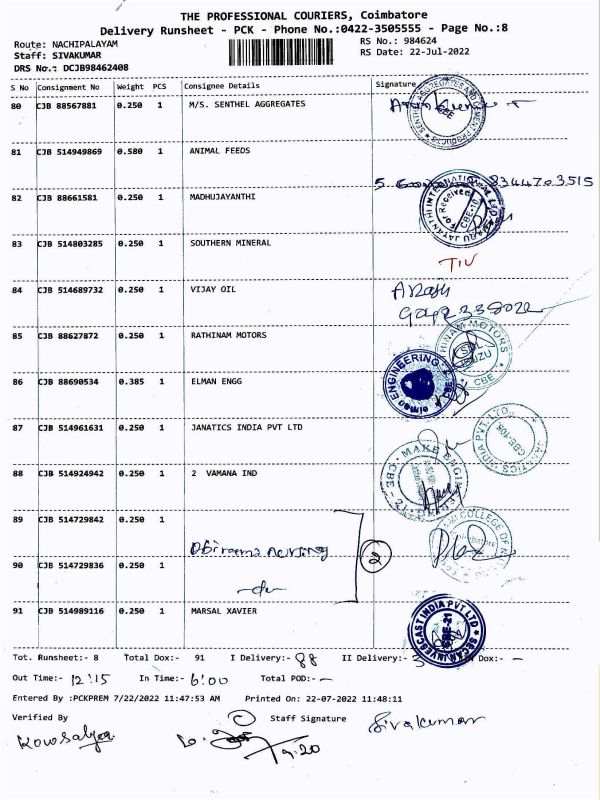 THE PROFESSIONAL COURIERS, Coimbatore
Delivery Runsheet - PCK - Phone No.:0422-3505555 - Page No.:8
Route: NACHIPALAYAM RS No.: 984624
Staff: SIVAKUMAR RS Date: 22-Jul-2022
DRS No.: DCJB98462408
S No Consignment No Weight PCS Consignee Details Signature
80 CJB 88567881 0.250 1 M/S. SENTHEL AGGREGATES
CBE
81 CJB 514949869 0.580 1 ANIMAL FEEDS
8344703515
82 CJB 88661581 0.250 1 MADHUJAYANTHI
For Received
CBE-10
83 CJB 514803285 0.250 1 SOUTHERN MINERAL
84 CJB 514689732 0.250 1 VIJAY OIL
85 CJB 88627872 0.250 1 RATHINAM MOTORS
86 CJB 88690534 0.385 1 ELMAN ENGG
elman ENGINEERING
87 CJB 514961631 0.250 1 JANATICS INDIA PVT LTD
88 CJB 514924942 0.250 1 2 VAMANA IND
89 CJB 514729842 0.250 1
2
90 CJB 514729836 0.250 1
91 CJB 514989116 0.250 1 MARSAL XAVIER
Tot. Runsheet:- 8 Total Dox:- 91 I Delivery:- 88 II Delivery:- 3 Dox:- -
Out Time:- 12:15 In Time:- 6:00 Total POD:- -
Entered By :PCKPREM 7/22/2022 11:47:53 AM Printed On: 22-07-2022 11:48:11
Verified By Staff Signature Sivakumar
Kowsalya